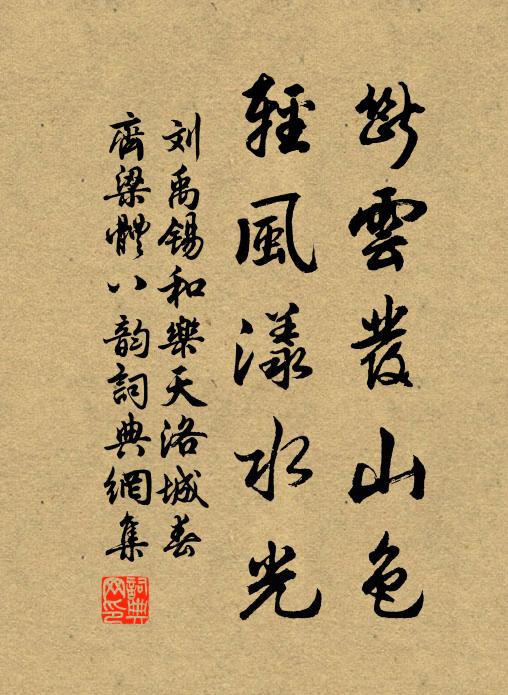 斷雲發山色
輕風漾水光
刘禹锡和樂天洛城春
齊梁體八韵詞典網集
詞典网印